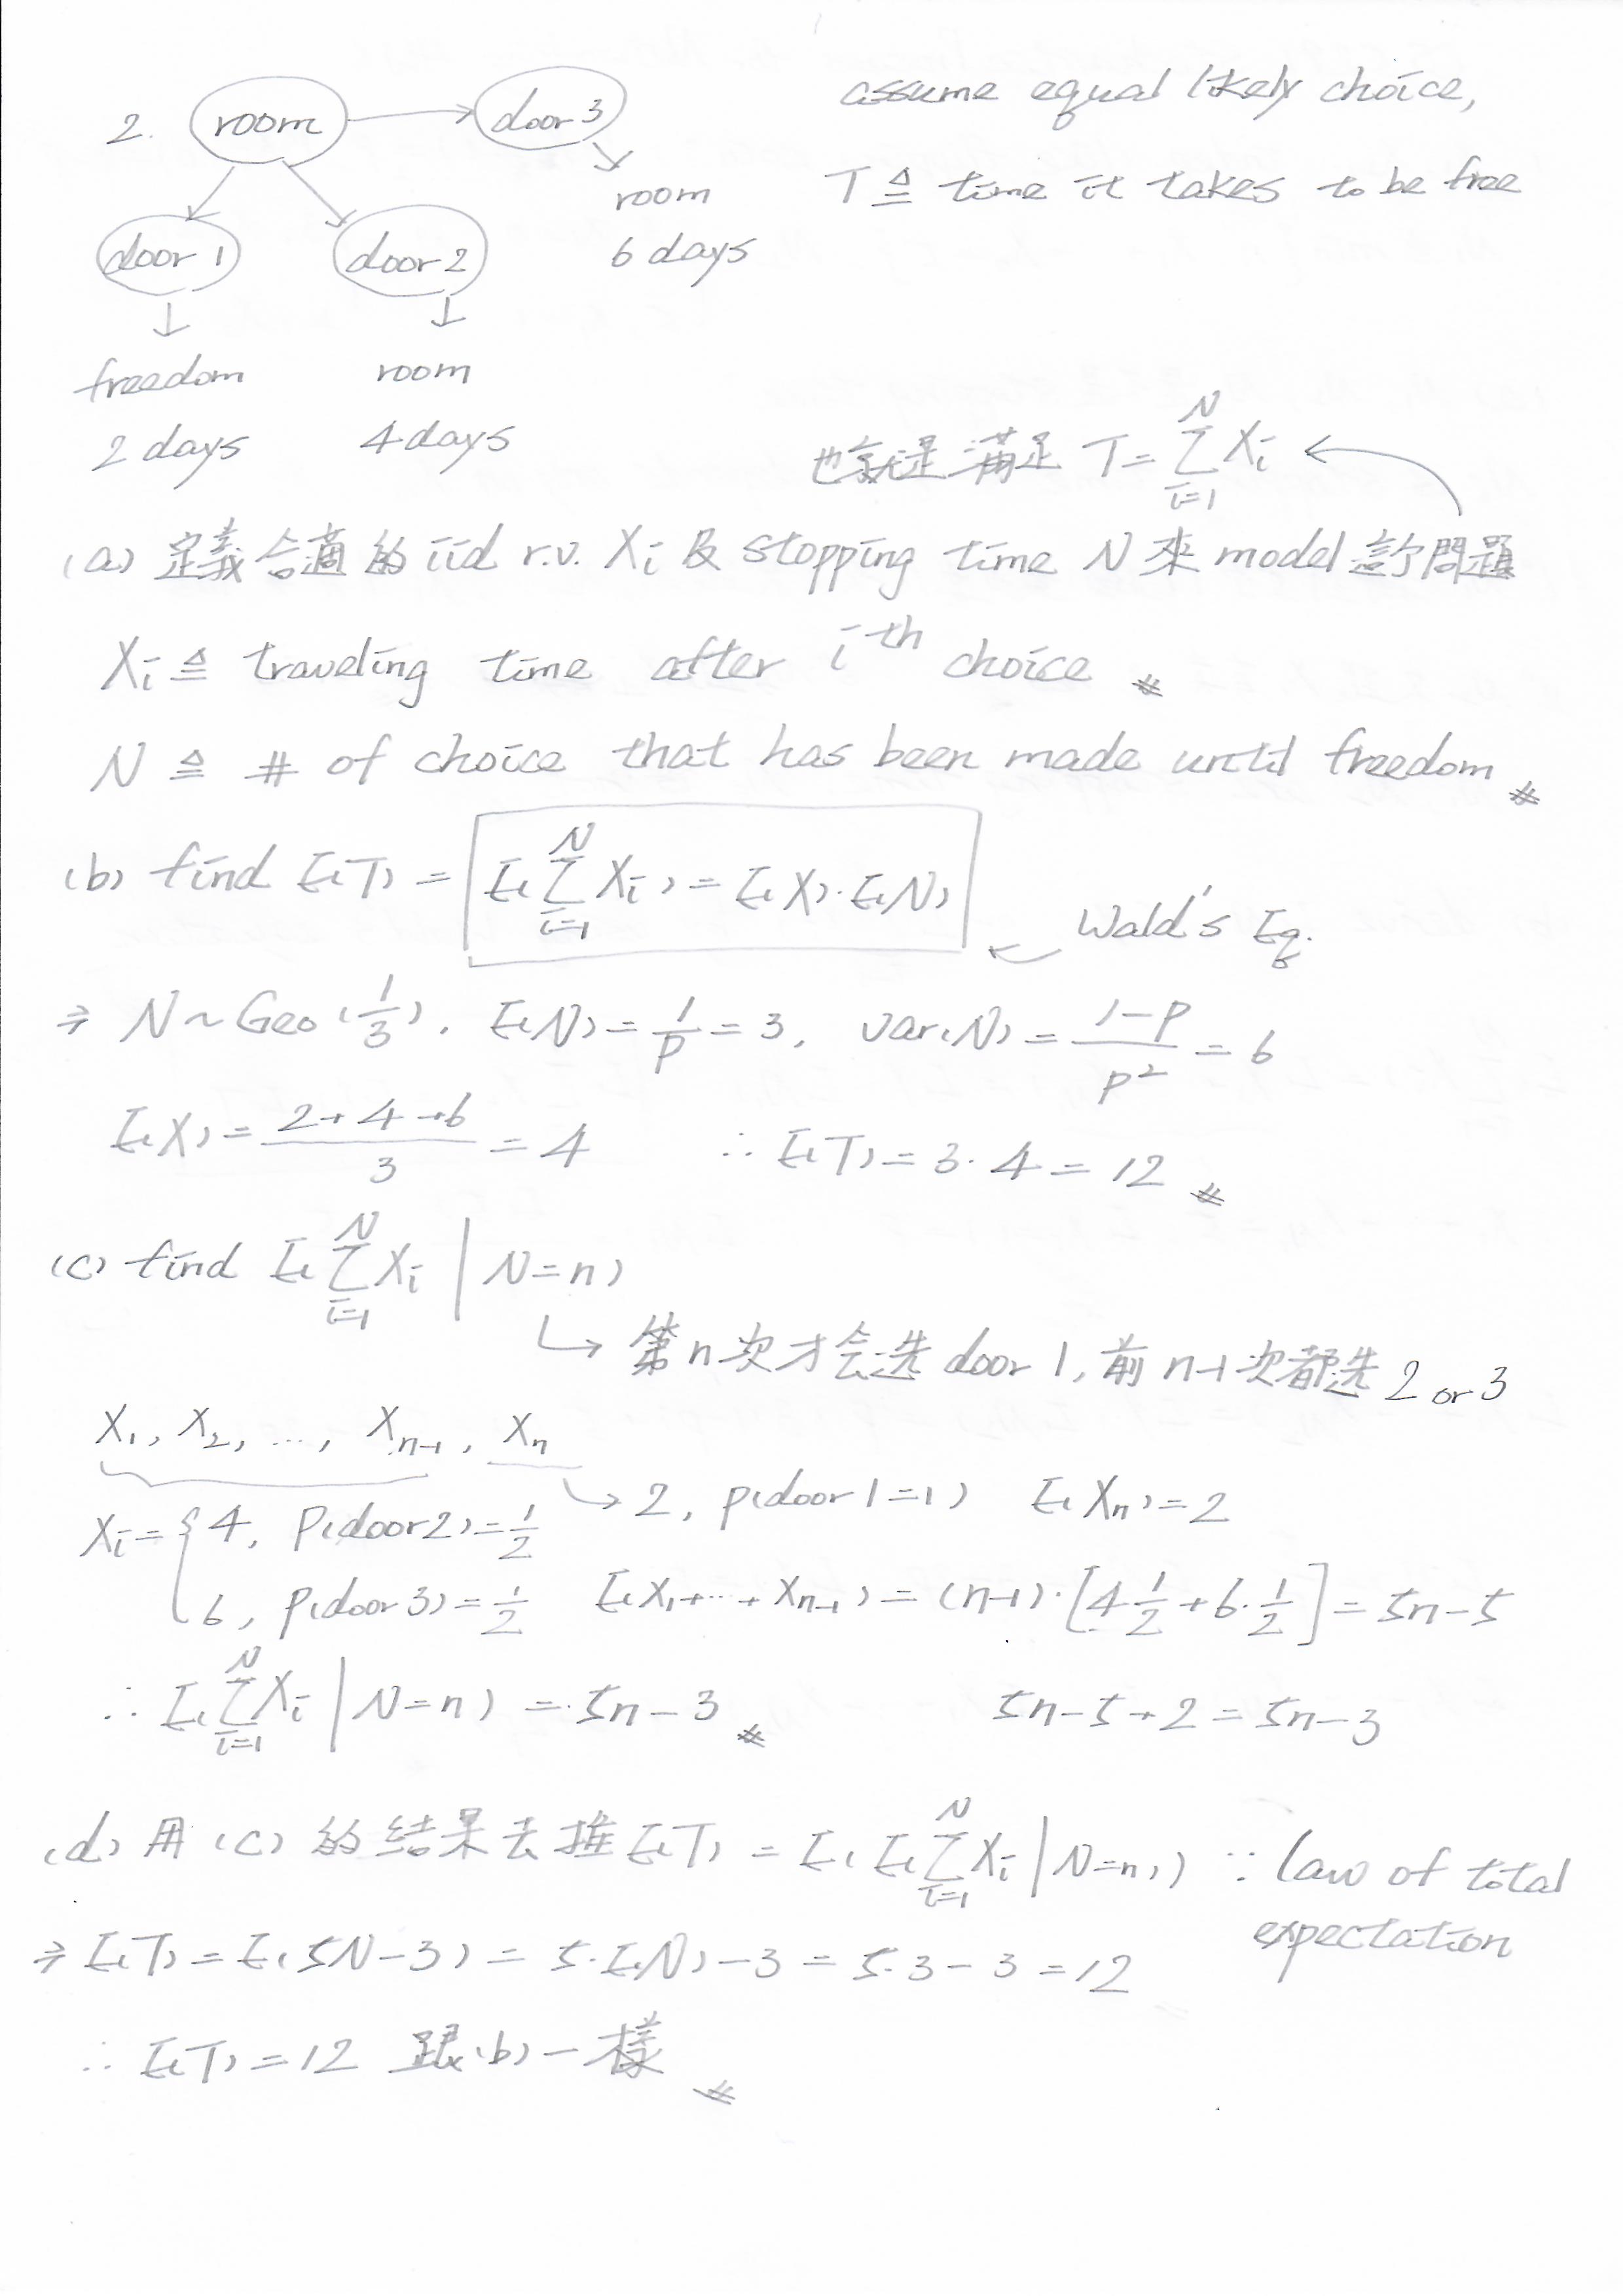 2. room → door 3 assume equal likely choice,
room T ≜ time it takes to be free
door 1 door 2 6 days
freedom room
2 days 4 days
也就是滿足 T = \sum_{i=1}^{N} X_i
(a) 定義合適的 iid r.v. X_i 及 stopping time N 來 model 這問題
X_i ≜ traveling time after i^th choice #
N ≜ # of choice that has been made until freedom #
(b) find E(T) = E(\sum_{i=1}^{N} X_i) = E(X)·E(N)
Wald's Eq.
⇒ N ~ Geo(1/3). E(N) = 1/p = 3, var(N) = (1-p)/p^2 = 6
E(X) = (2+4+6)/3 = 4 ∴ E(T) = 3·4 = 12 #
(c) find E(\sum_{i=1}^{N} X_i | N=n)
↳ 第n次才会选 door 1, 前 n-1 次都选 2 or 3
X_1, X_2, ..., X_{n-1}, X_n
→ 2, p(door 1 = 1) E(X_n) = 2
X_i = { 4, P(door 2) = 1/2
6, p(door 3) = 1/2 E(X_1+...+X_{n-1}) = (n-1)·[4 1/2 + 6·1/2] = 5n-5
∴ E(\sum_{i=1}^{N} X_i | N=n) = 5n-3 # 5n-5+2 = 5n-3
(d) 用 (c) 的结果去推 E(T) = E(E(\sum_{i=1}^{N} X_i | N=n)) ∵ law of total
expectation
⇒ E(T) = E(5N-3) = 5·E(N)-3 = 5·3-3 = 12
∴ E(T) = 12 跟(b)一樣 #